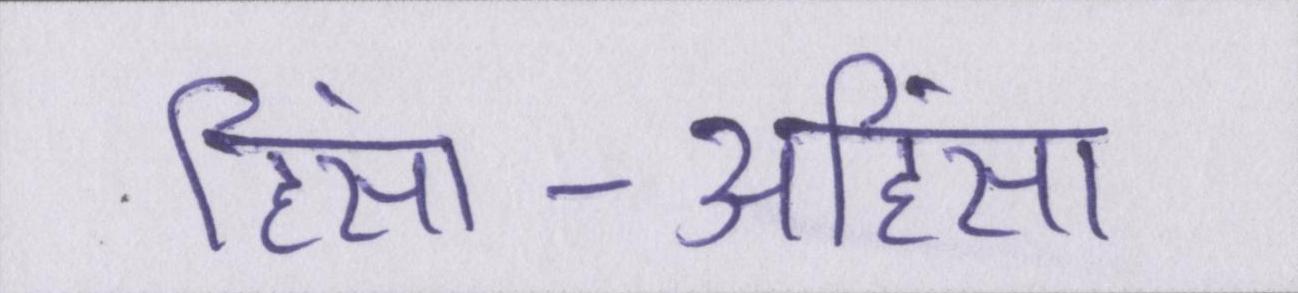 हिंसा - अहिंसा